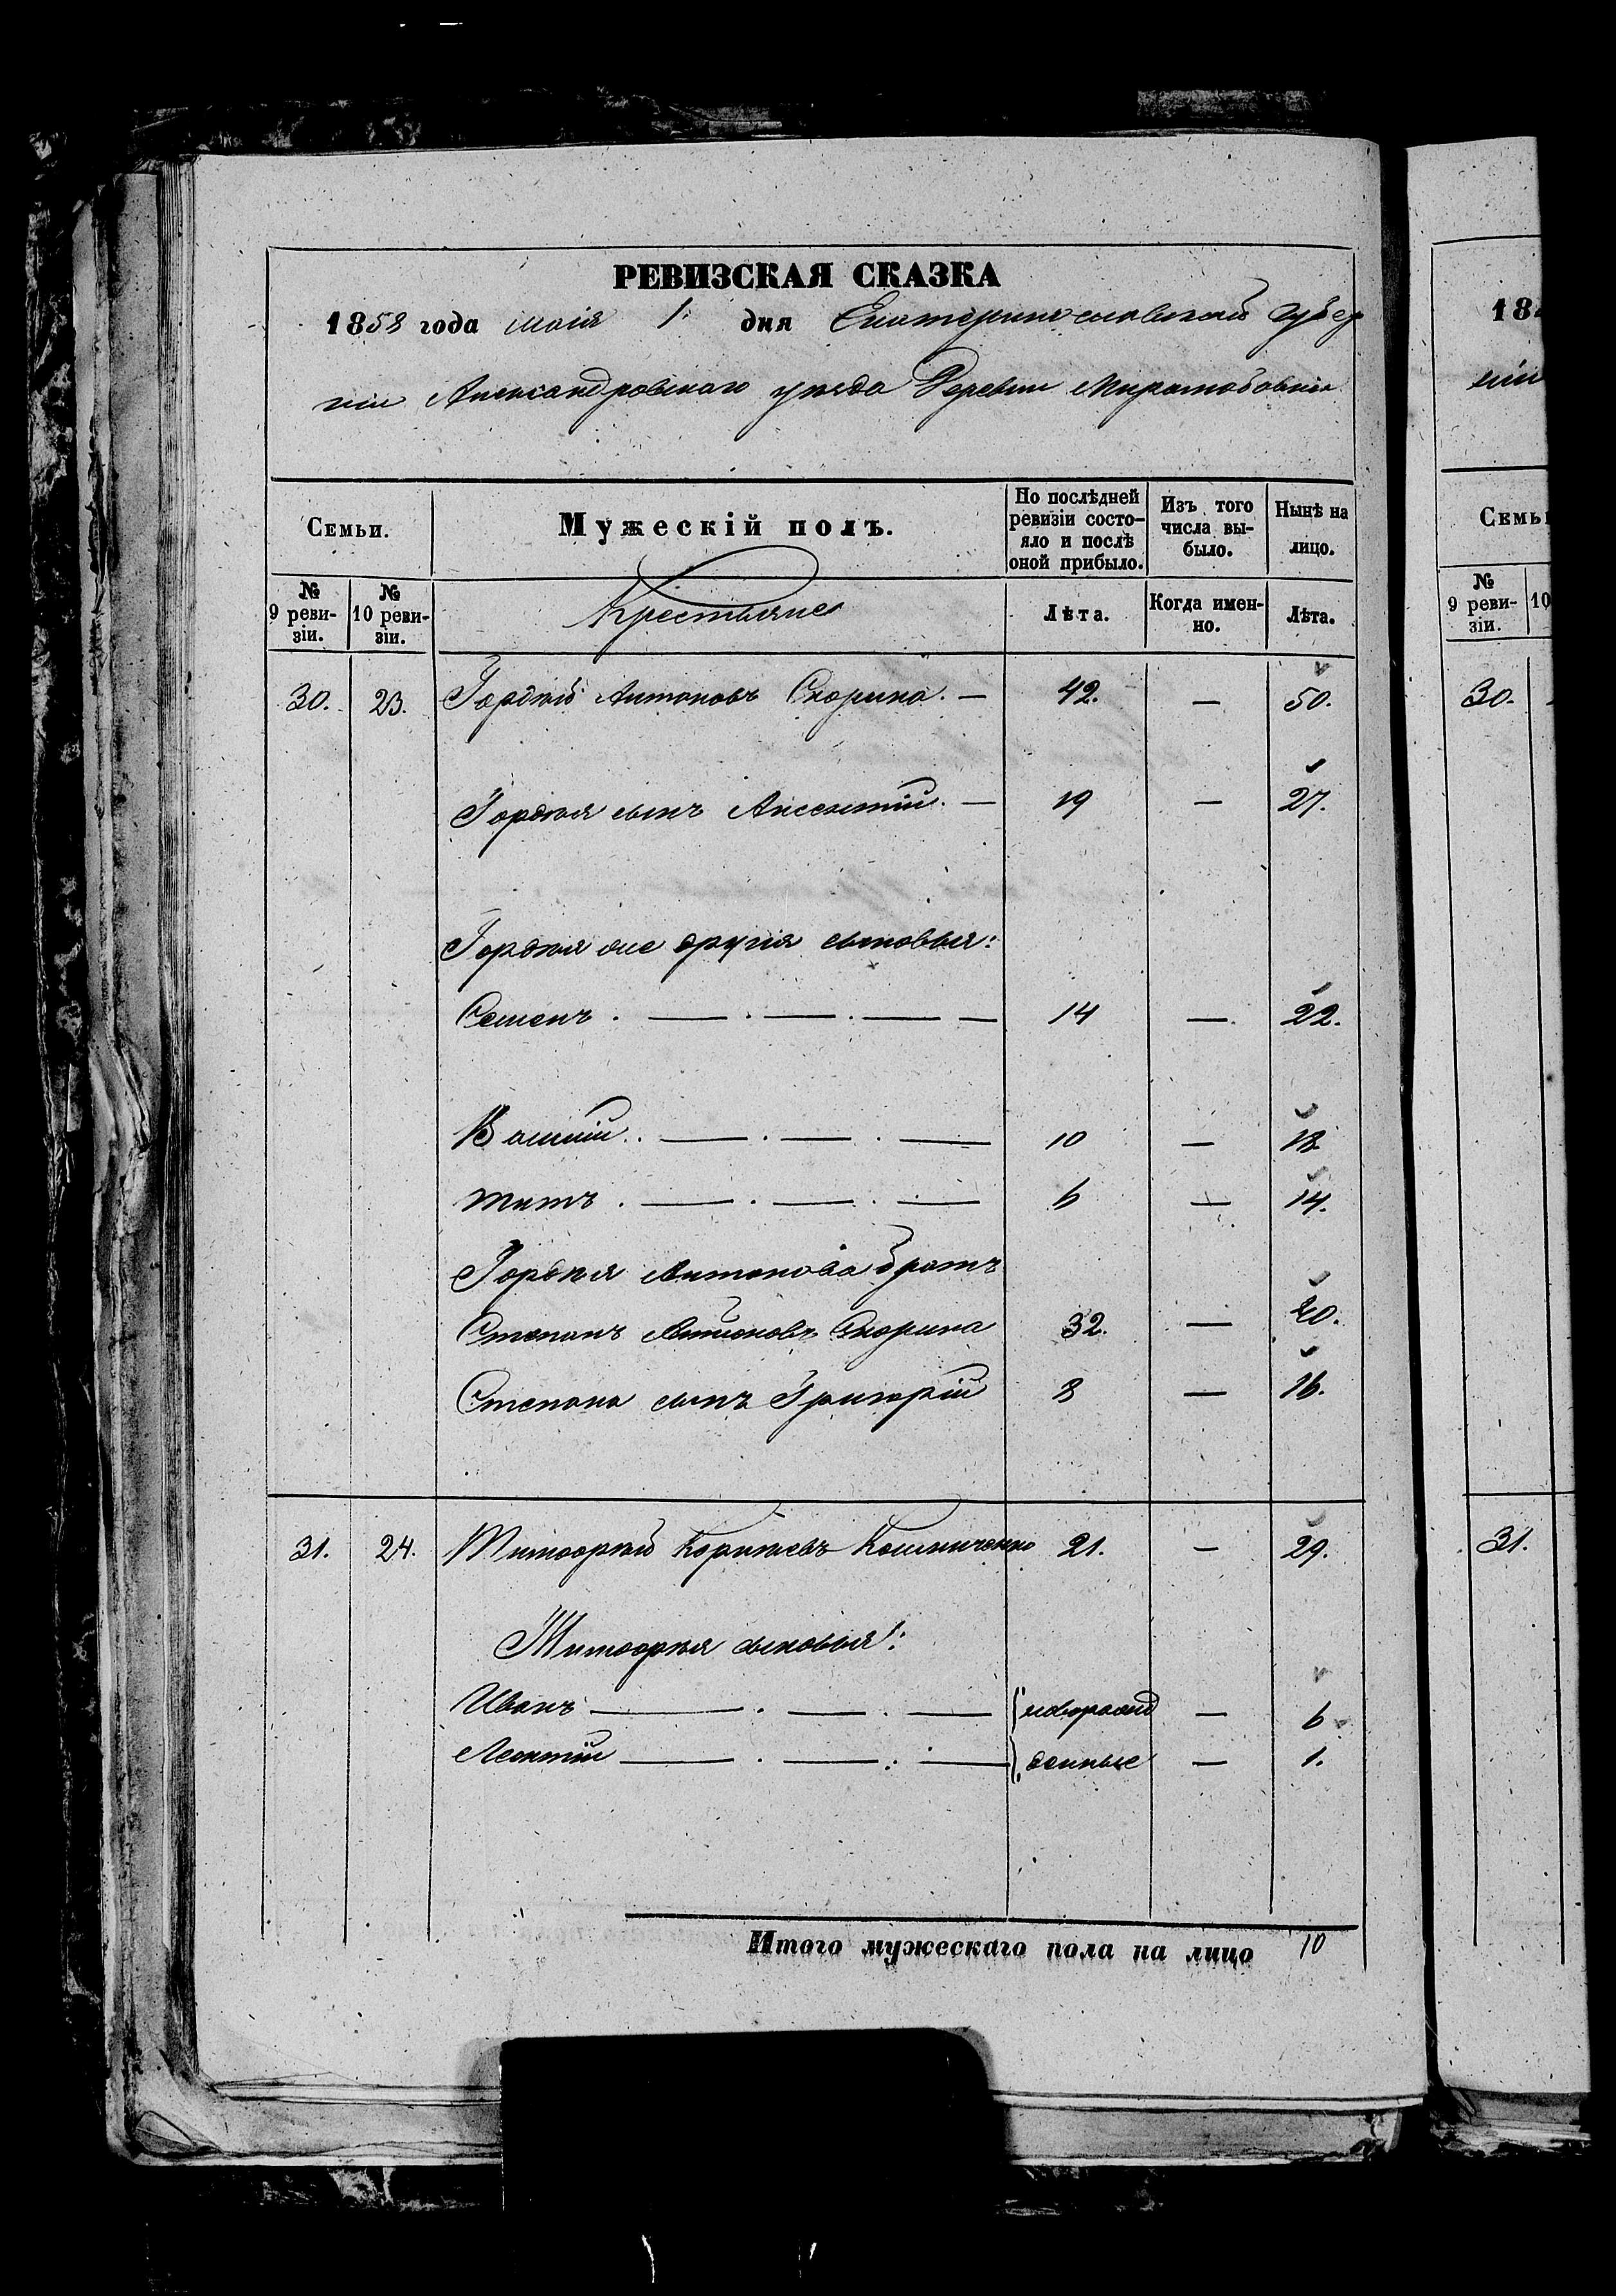 РЕВИЗСКАЯ СКАЗКА
1858 года маія 1. дня Екатеринославской губер
ніи Александровскаго уѣзда Деревни
Семьи. Мужескій полъ. По послѣдней ревизіи состо- яло и послѣ оной прибыло. Изъ того числа вы- было. Нынѣ на лицо.
№ 9 реви- зіи. № 10 реви- зіи. Крестьяне Лѣта. Когда имен- но. Лѣта.
30. 23. Гордѣй Антоновъ Скорина. — 42. — 50.
Гордѣя сынъ Аксентій. — 19 — 27.
Гордѣя же другія сыновья:
Семенъ . — . — . — — 14 — 22.
Василій . — . — . — 10 — 18
Титъ . — . — . — 6 — 14.
Гордѣя Антонова братъ
Степанъ Антоновъ Скорина 32. — 40.
Степана сынъ Григорій 8 — 16.
31. 24. Тимофѣй 21. — 29.
Тимофѣя сыновья:
Иванъ — . — . — новорожд — 6
Леонтій — . — . — денные — 1.
Итого мужескаго пола на лицо 10
18
ніи
Семьи
№ 9 реви- зіи. 10
30.
31.